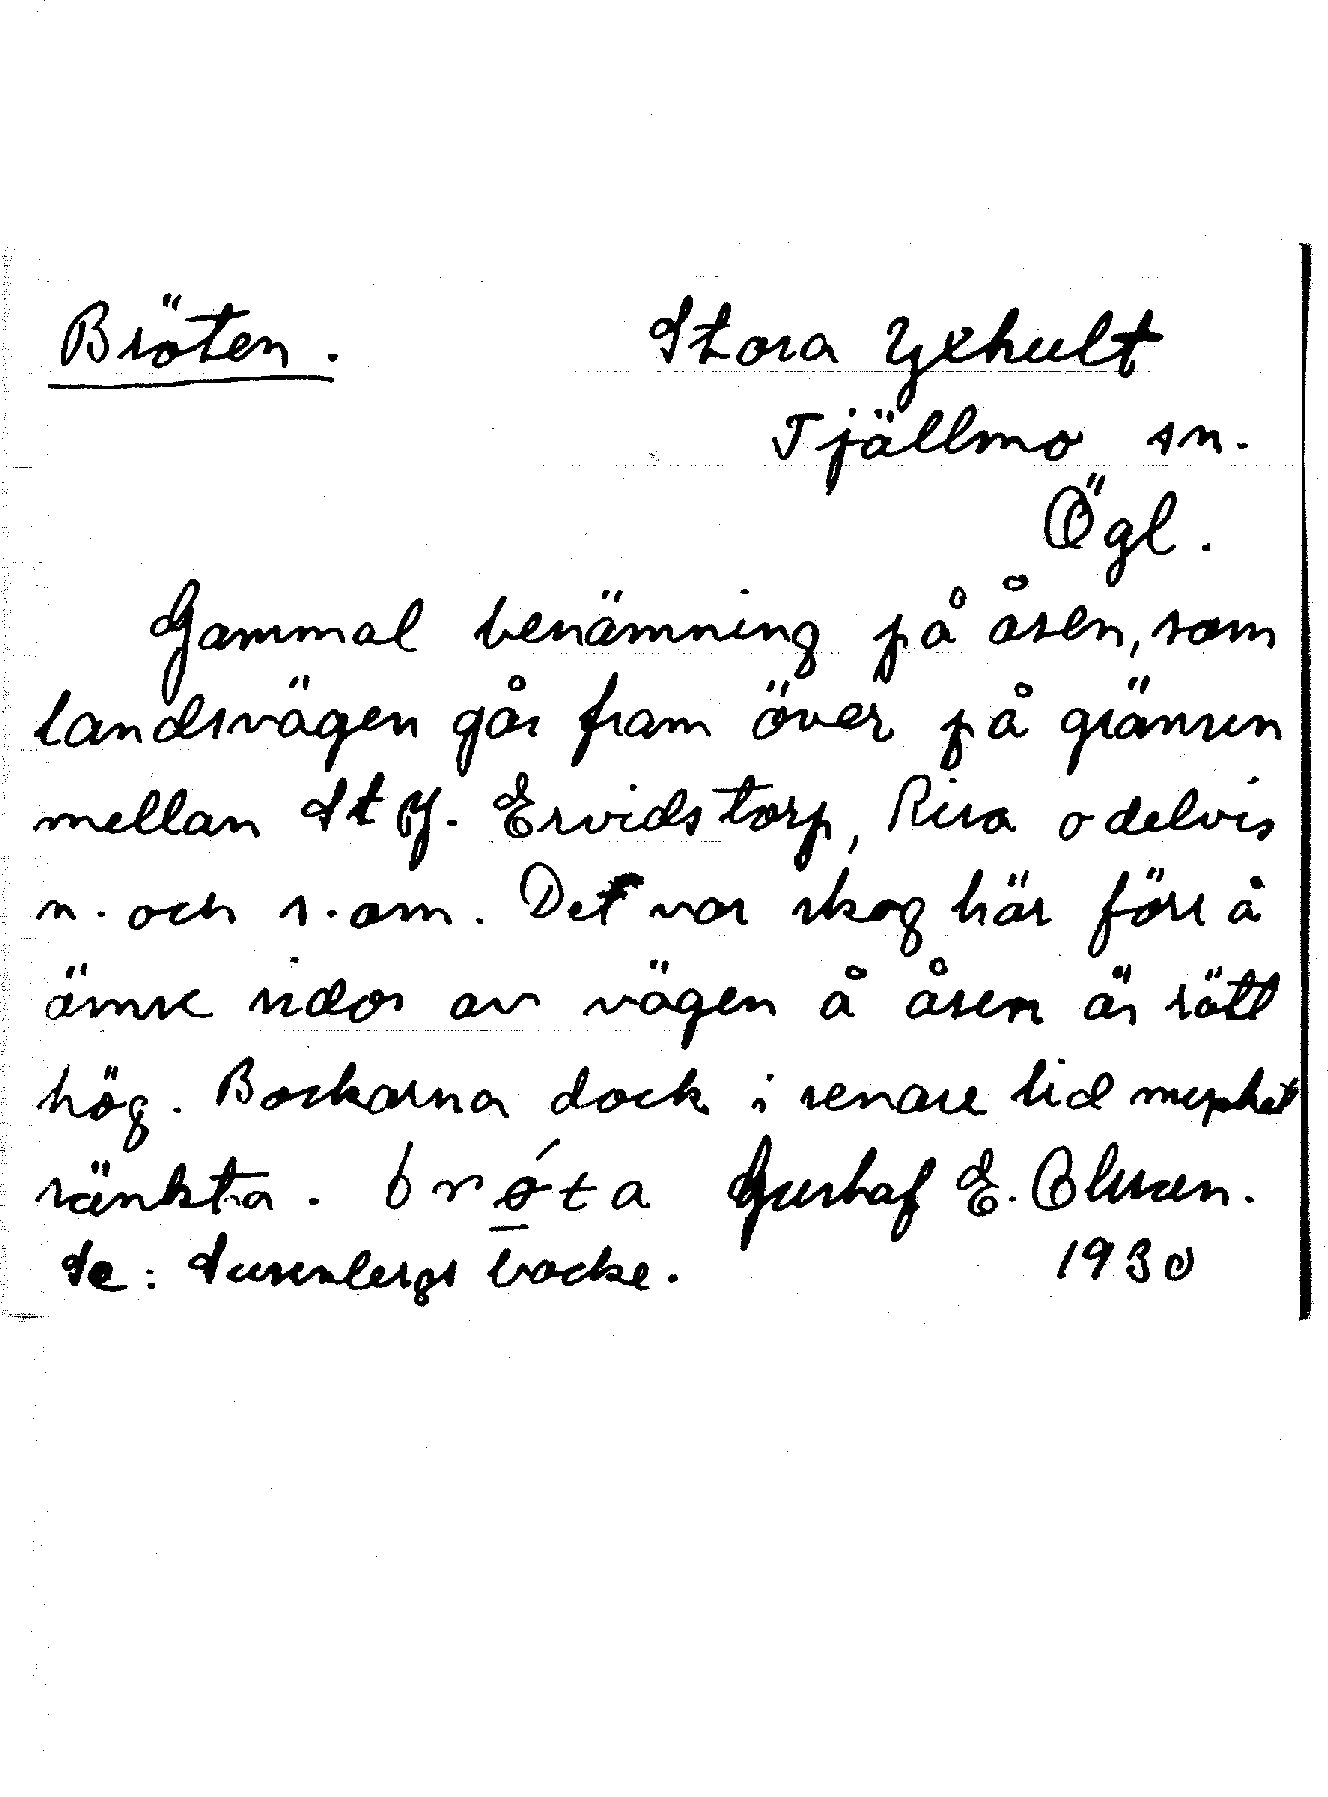 Bröten.
Stora Yxhult
Tjällmo sn.
Ögl.
Gammal benämning på åsen, som
landsvägen går fram över på gränsen
mellan St Y. Ervidstorp, Risa o delvis
n. och s. om. Det var skog här förr å
ömse sidor av vägen å åsen är rätt
hög. Backarna dock i senare tid mycket
sänkta. bróta Gustaf E. Olsson.
Se: backe. 1930